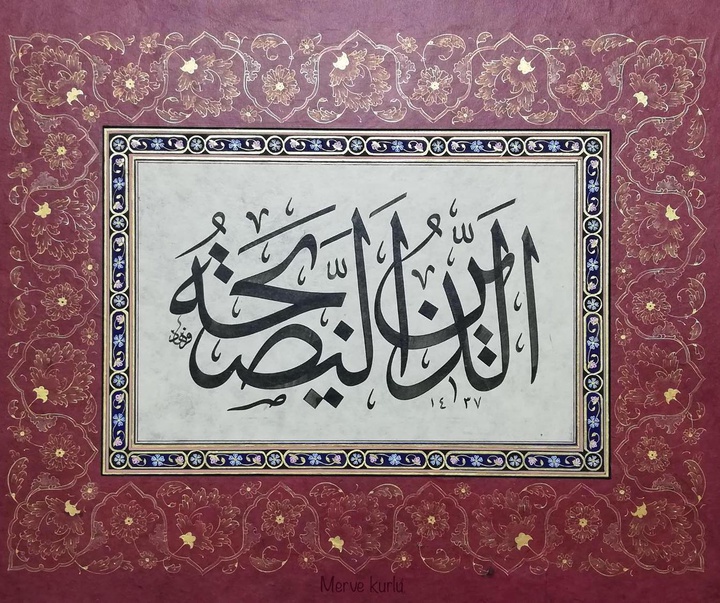 الدِّينُ النَّصِيحَةُ
١٤٣٧
Merve kurlu